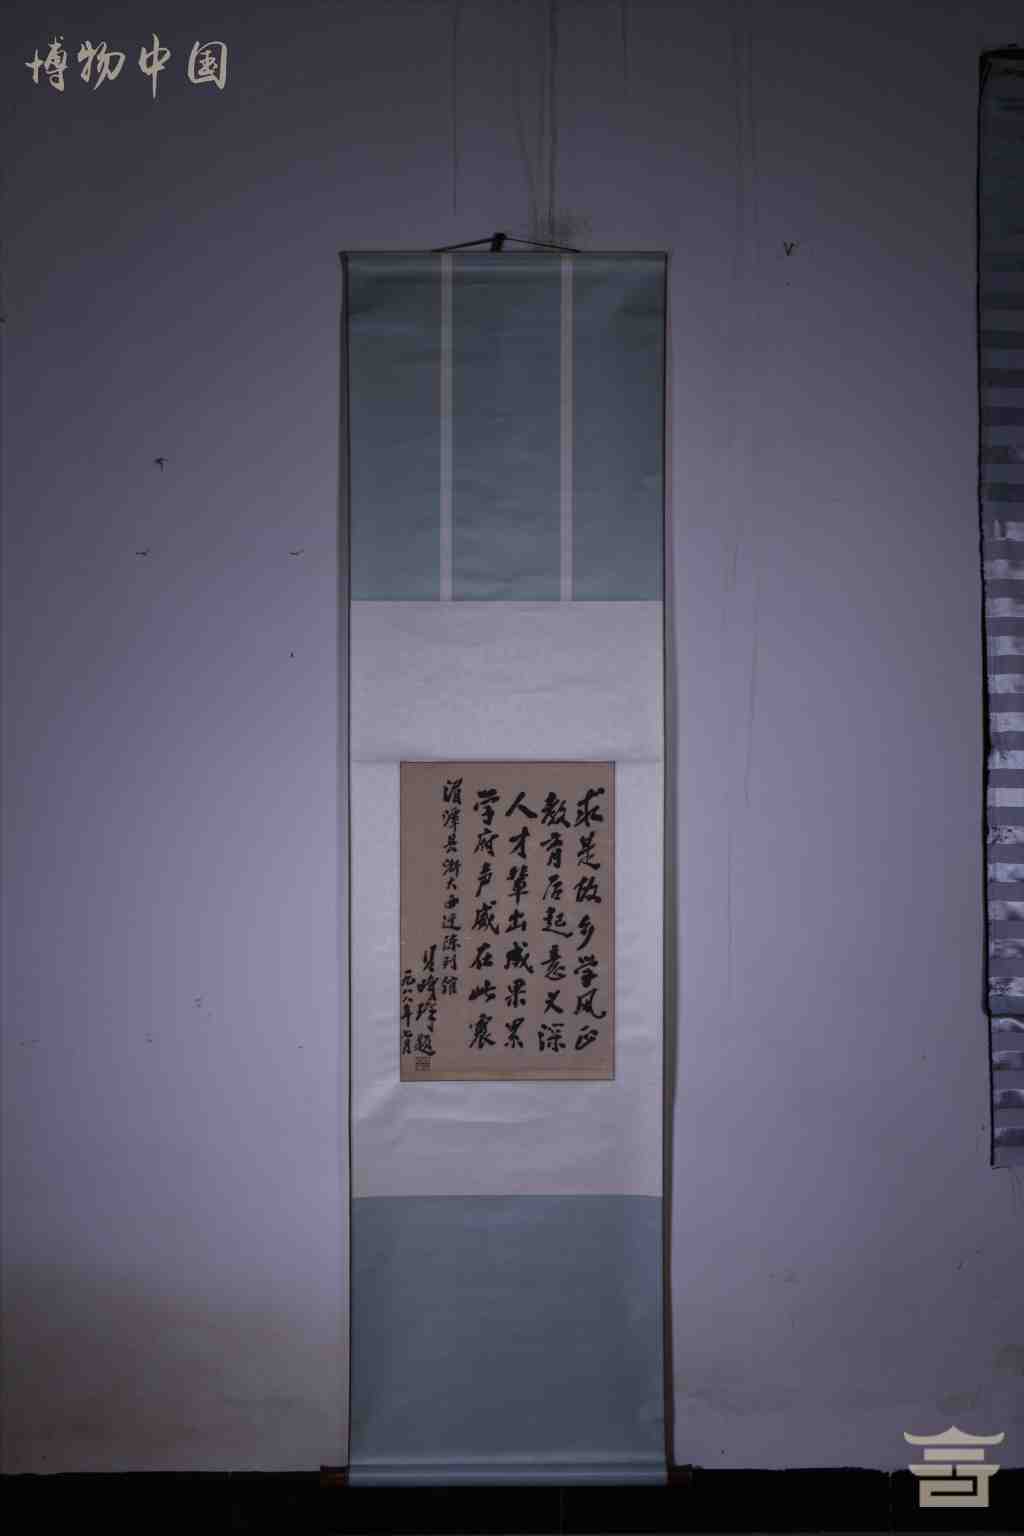 博物中国
求是故乡学风正
教育后起意义深
人才辈出成果累
学府声威在此震
湄潭县浙大西迁陈列馆
题
一九八八年七月